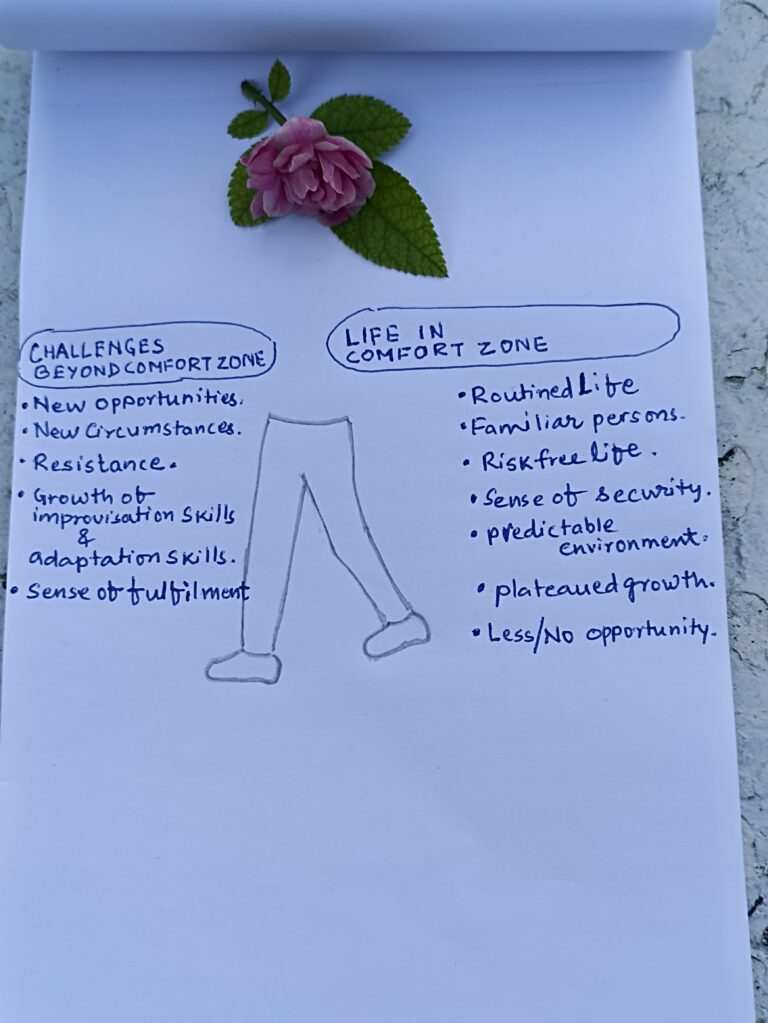 CHALLENGES
BEYOND COMFORT ZONE
• New opportunities.
• New Circumstances.
• Resistance.
• Growth of
improvisation skills
&
adaptation skills.
• Sense of fulfilment
LIFE IN
COMFORT ZONE
• Routined Life
• Familiar persons.
• Risk free life.
• Sense of security.
• predictable
environment.
• plateaued growth.
• Less/No opportunity.